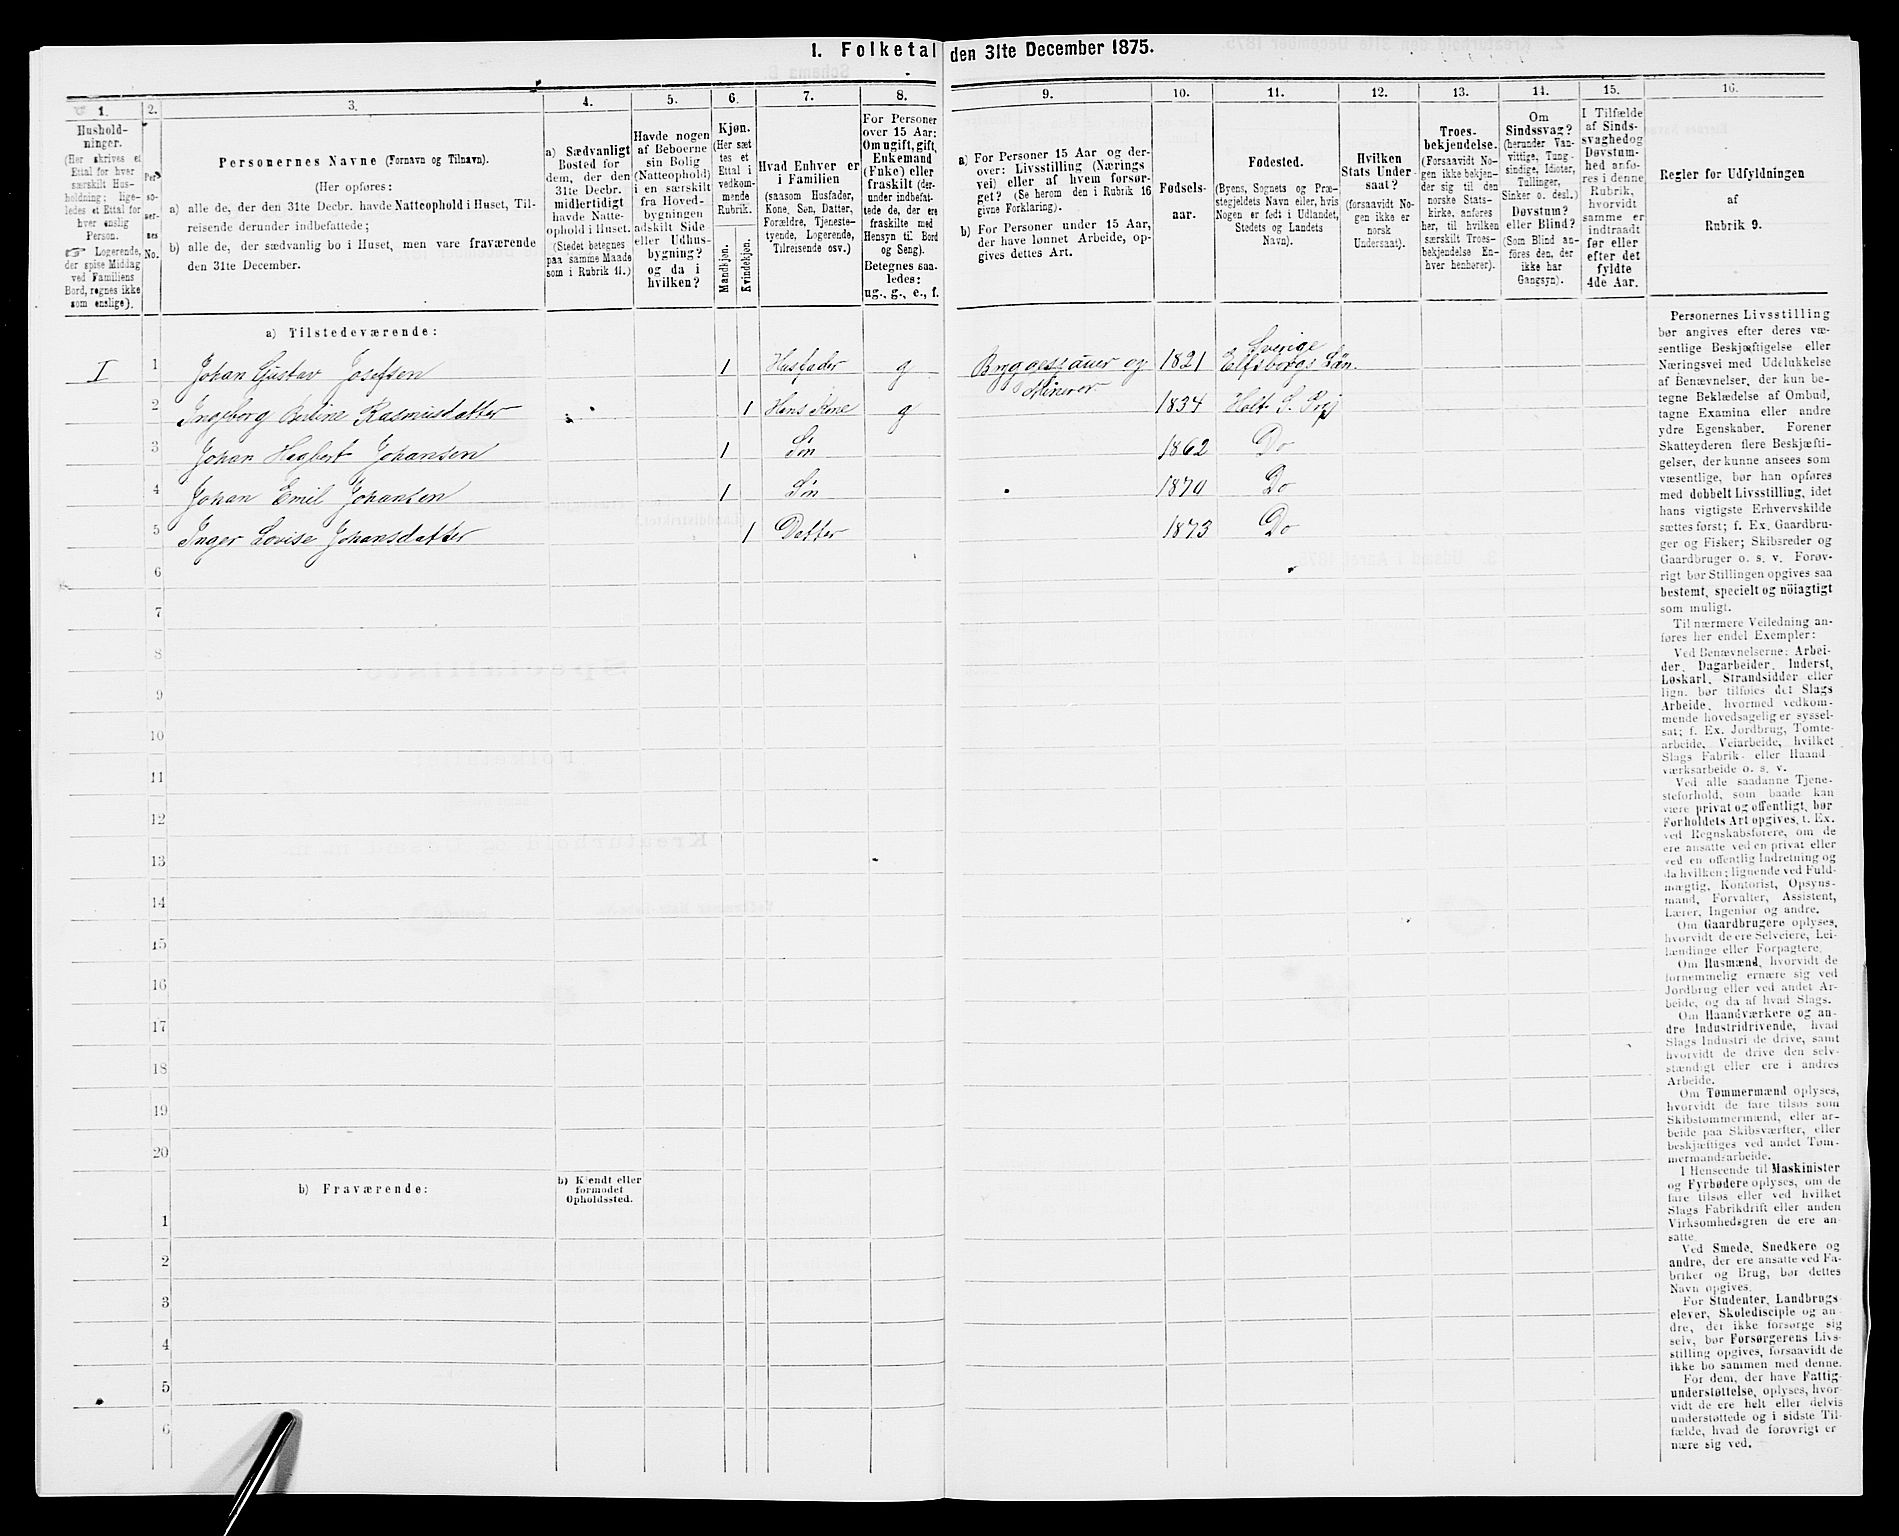 I. Folketal den 31te December 1875.
1.
2.
3.
4.
5.
6.
7.
8.
9.
10.
11.
12.
13.
14.
15.
16.
Hushold-
ninger.
(Her skrives et
Ettal for hver
særskilt Hus-
holdning; lige-
ledes et Ettal for
hver enslig
Person.
☞ Logerende,
der spise Middag
ved Familiens
Bord, regnes ikke
som enslige).
Per-
so-
ner-
nes
No.
Personernes Navne (Fornavn og Tilnavn).
(Her opføres:
a) alle de, der den 31te Decbr. havde Natteophold i Huset, Til-
reisende derunder indbefattede;
b) alle de, der sædvanlig bo i Huset, men vare fraværende
den 31te December.
a) Sædvanligt
Bosted for
dem, der den
31te Decbr.
midlertidigt
havde Natte-
ophold i Huset.
(Stedet betegnes
paa samme Maade
som i Rubrik 11.)
Havde nogen
af Beboerne
sin Bolig
(Natteophold)
i en særskilt
fra Hoved-
bygningen
adskilt Side
eller Udhus-
bygning?
og da i
hvilken?
Kjøn.
(Her sæt
tes et
Ettal i
vedkom-
mende
Rubrik.
Mandkjøn.
Kvindekjøn.
Hvad Enhver er
i Familien
(saasom Husfader,
Kone, Søn, Datter,
Forældre, Tjeneste-
tyende, Logerende,
Tilreisende osv.)
For Personer
over 15 Aar:
Om ugift, gift,
Enkemand
(Enke) eller
fraskilt (der-
under indbefat-
tede de, der ere
fraskilte med
Hensyn til Bord
og Seng).
Betegnes saa-
ledes:
ug., g., e., f.
a) For Personer 15 Aar og der-
over: Livsstilling (Nærings
vei) eller af hvem forsør-
get? (Se herom den i Rubrik 16
givne Forklaring).
b) For Personer under 15 Aar,
der have lønnet Arbeide, op-
gives dettes Art.
Fødsels-
aar.
Fødested.
(Byens, Sognets og Præ-
stegjeldets Navn eller, hvis
Nogen er født i Udlandet,
Stedets og Landets
Navn).
Hvilken
Stats Under-
saat?
(forsaavidt No-
gen ikke er
norsk
Undersaat).
Troes-
bekjendelse.
(Forsaavidt No-
gen ikke bekjen-
der sig til den
norske Stats-
kirke, anføres
her, til hvilken
særskilt Troes-
bekjendelse En-
hver henhører).
Om
Sindssvag?
(herunder Van-
vittige, Tung-
sindige, Idioter,
Tullinger,
Sinker o. desl.)
Døvstum?
eller Blind?
(Som Blind an-
føres den, der
ikke har
Gangsyn).
I Tilfælde
af Sinds-
svaghed og
Døvstum-
hed anfø-
res i denne
Rubrik,
hvorvidt
samme er
indtraadt
før eller
efter det
fyldte
4de Aar.
Regler for Udfyldningen
af
Rubrik 9.
a) Tilstedeværende:
I 1 Johan Gustav Josefsen 1 Husfader g Bryggessauer og 1821 Sverige
Elfsborgs Län.
Minerer
2 Ingeborg Berline Rasmusdatter 1 Hans Kone g 1834 Holt S. Prgj
3 Johan Hagbert Johansen 1 Søn 1862 Do
4 Johan Emil Johansen 1 Søn 1870 Do
5 Inger Lovise Johansdatter 1 Datter 1873 Do
6
7
8
9
10
11
12
13
14
15
16
17
18
19
20
b) Fraværende:
b) Kjendt eller
formodet
Opholdssted.
1
2
3
4
5
6
Personernes Livsstilling
bør angives efter deres væ-
sentlige Beskjæftigelse eller
Næringsvei med Udelukkelse
af Benævnelser, der kun be-
tegne Beklædelse af Ombud,
tagne Examina eller andre
ydre Egenskaber. Forener
Skatteyderen flere Beskjæfti-
gelser, der kunne ansees som
væsentlige, bør han opføres
med dobbelt Livsstilling, idet
hans vigtigste Erhvervskilde
sættes først; f. Ex. Gaardbru-
ger og Fisker; Skibsreder og
Gaardbruger o. s. v. Forøv-
rigt bør Stillingen opgives saa
bestemt, specielt og nöiagtigt
som muligt.
Til nærmere Veiledning an-
føres her endel Exempler:
Ved Benævnelserne: Arbei-
der, Dagarbeider, Inderst,
Løskarl, Strandsidder eller
lign. bør tilføies det Slags
Arbeide, hvormed vedkom-
mende hovedsagelig er syssel-
sat; f. Ex. Jordbrug, Tomte-
arbeide, Veiarbeide, hvilket
Slags Fabrik- eller Haand
værksarbeide o. s. v.
Ved alle saadanne Tjene-
steforhold, som baade kan
være privat og offentligt, bør
Forholdets Art opgives, t. Ex.
ved Regnskabsførere, om de
ere ansatte ved en privat eller
ved en offentlig Indretning og
da hvilken; lignende ved Fuld-
mægtig, Kontorist, Opsyns-
mand, Forvalter, Assistent,
Lærer, Ingeniør og andre.
Om Gaardbrugere oplyses,
hvorvidt de ere Selveiere, Lei-
lændinge eller Forpagtere.
Om Husmænd, hvorvidt de
fornemmelig ernære sig ved
Jordbrug eller ved andet Ar-
beide, og da af hvad Slags.
Om Haandværkere og an-
dre Industridrivende, hvad
Slags Industri de drive, samt
hvorvidt de drive den selv-
stændigt eller ere i andres
Arbeide.
Om Tømmermænd oplyses,
hvorvidt de fare tilsøs som
Skibstømmermænd, eller ar-
beide paa Skibsværfter, eller
beskjæftiges ved andet Tøm-
mermandsarbeide.
I Henseende til Maskinister
og Fyrbødere oplyses, om de
fare tilsøs eller ved hvilket
Slags Fabrikdrift eller anden
Virksomhedsgren de ere an-
satte.
Ved Smede, Snedkere og
andre, der ere ansatte ved Fa-
briker og Brug, bør dettes
Navn opgives.
For Studenter, Landbrugs
elever, Skoledisciple og an-
dre, der ikke forsørge sig
selv, bør Forsørgerens Livs-
stilling opgives, forsaavidt de
ikke bo sammen med denne.
For dem, der have Fattig
understøttelse, oplyses, hvor-
vidt de ere helt eller delvis
understøttede og i sidste Til-
fælde, hvad de forøvrigt er
nære sig ved.